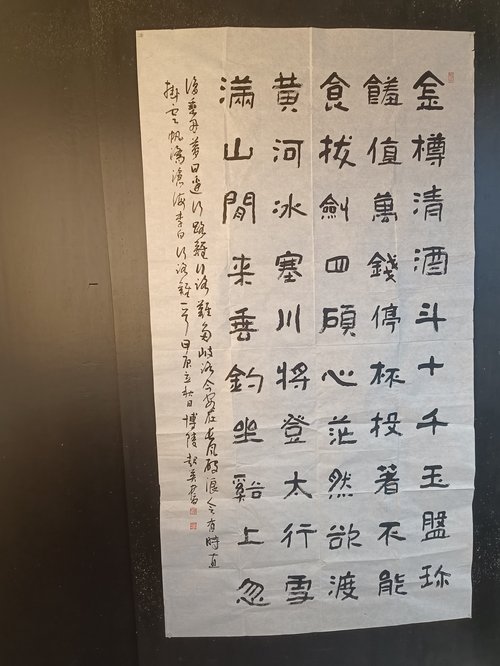 金樽清酒斗十千玉盤珎
饈值萬錢停杯投著不能
食拔劍四顧心茫然欲渡
黄河冰塞川將登太行雪
滿山閒来垂釣坐谿上忽
復乘舟夢日邊行路難行路難多岐路今安在長風破浪會有時直
掛雲帆濟滄海李白行路難一首立秋日博陵書